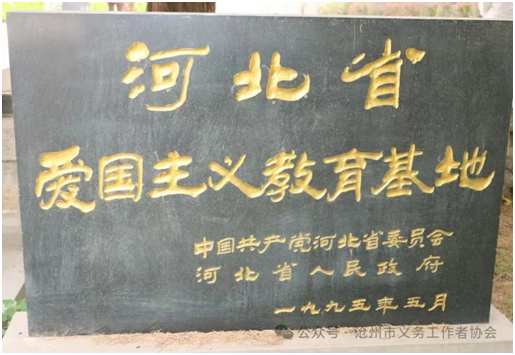 河北省
爱国主义教育基地
中国共产党河北省委员会
河北省人民政府
一九九五年五月
公众号·沧州市义务工作者协会